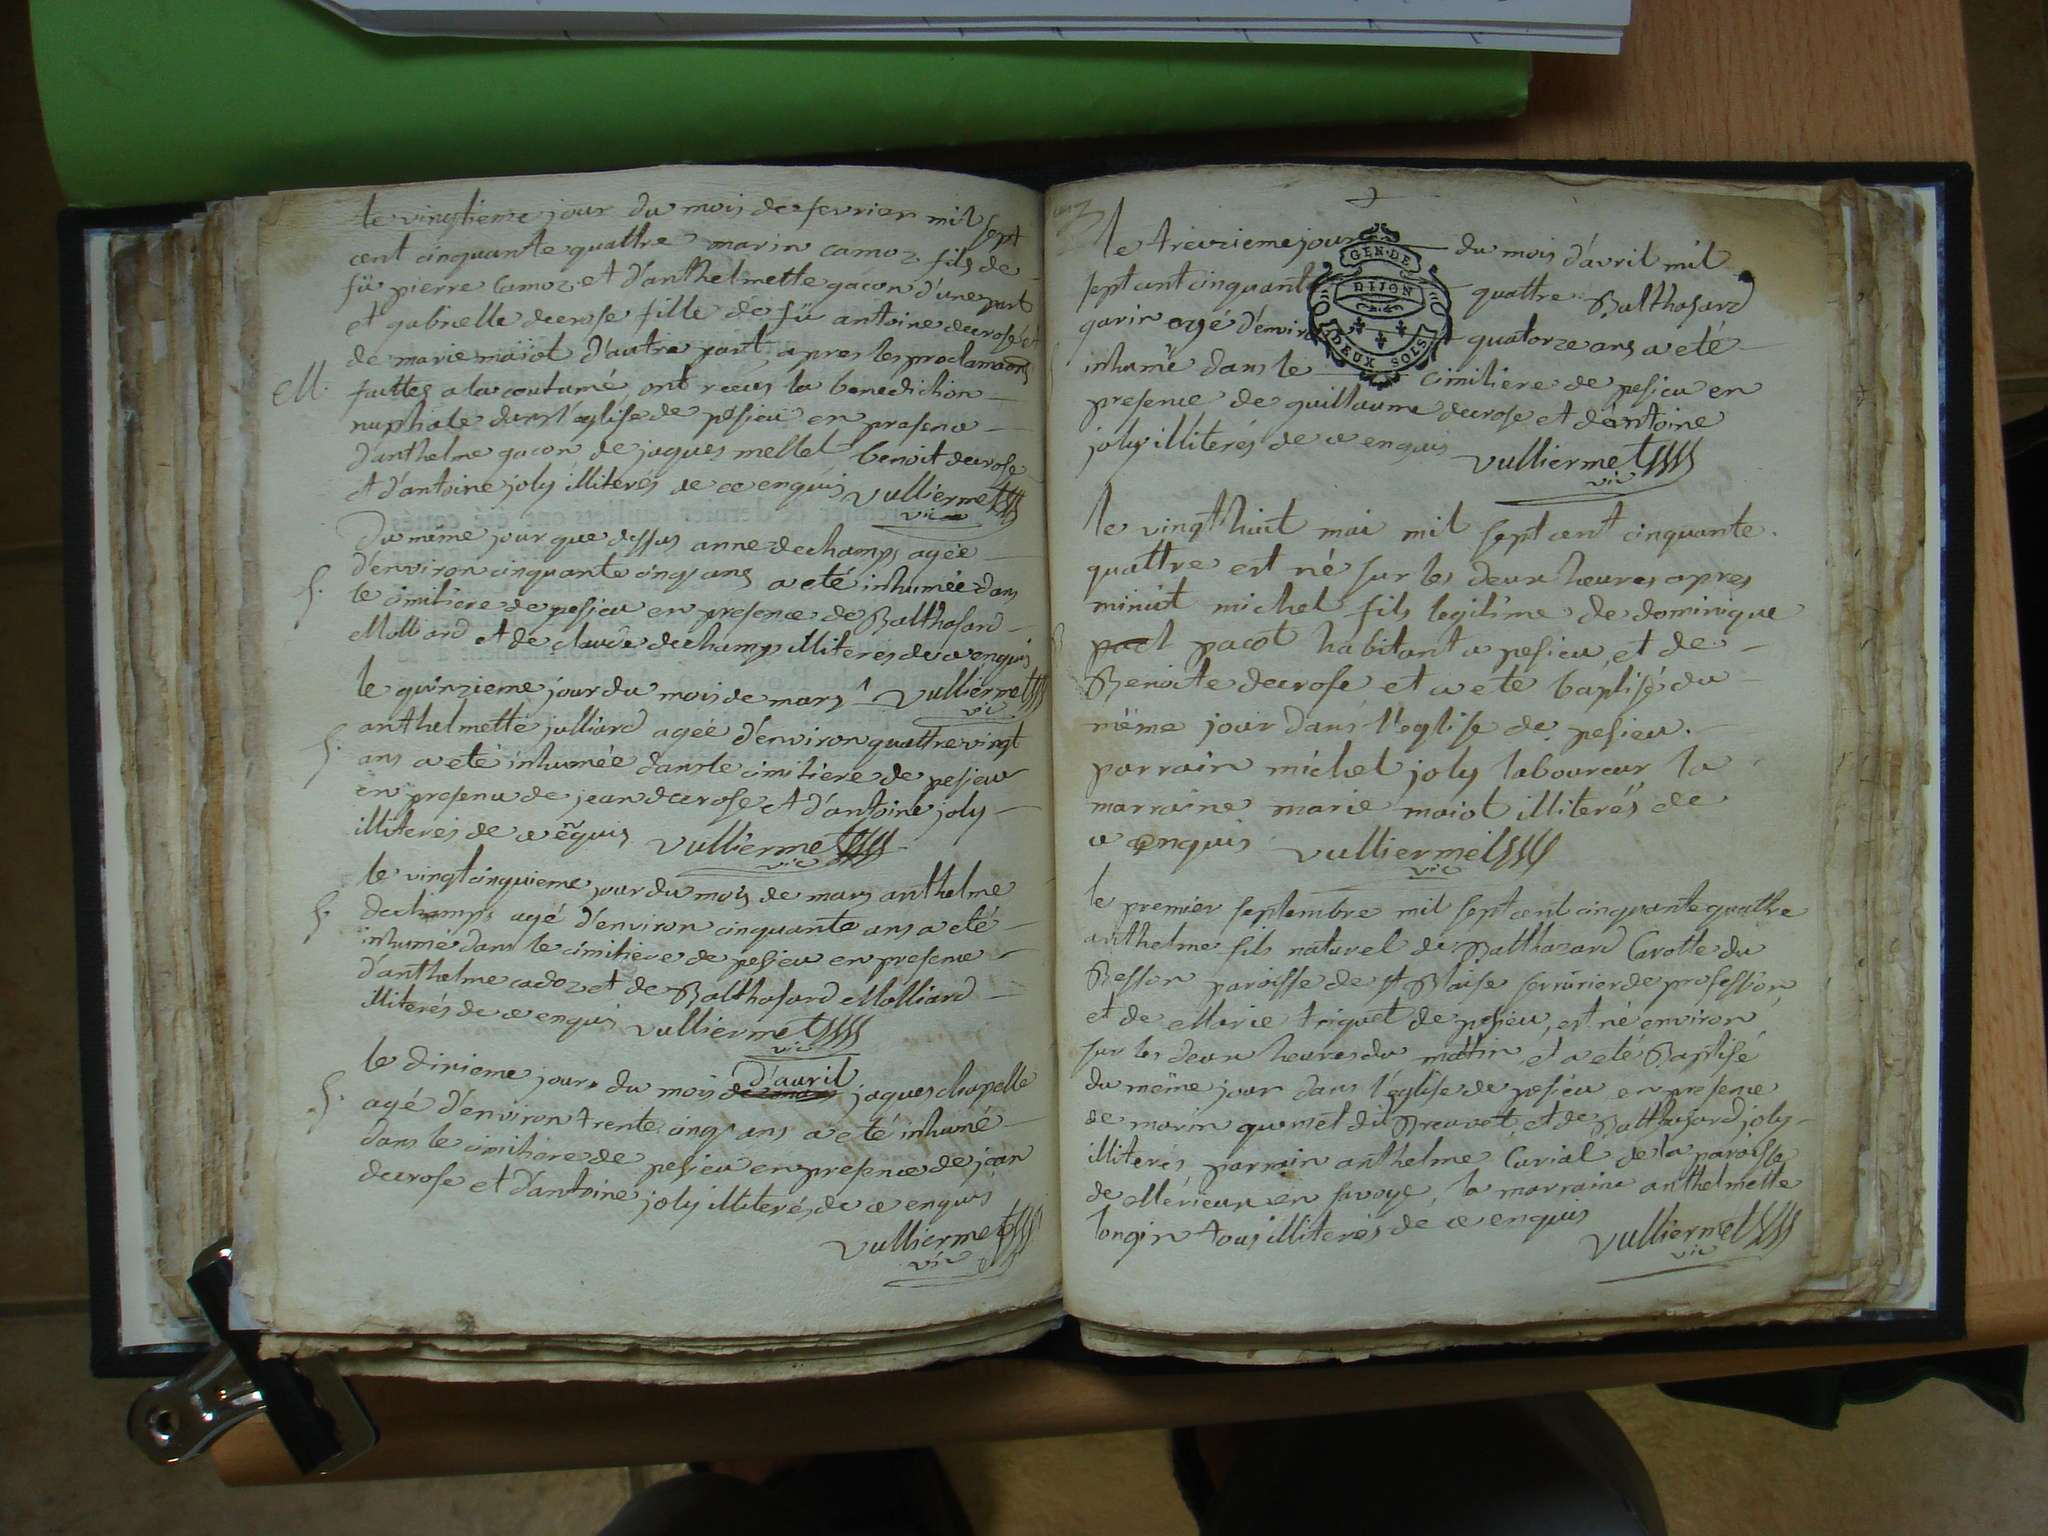 le vingtieme jour du mois de fevrier mil sept
cent cinquante quattre marin camoz fils de
fü pierre camoz et d'anthelmette gacon d'une part
et gabrielle decrose fille de fü antoine decrose et
de marie maiot d'autre part, apres les proclamaõns
faittes a la coutume, ont receus la benediction
nuptiale dans l'eglise de pesieu en presence
d'anthelme gacon de jaques mellet benoit decrose
et d'antoine joly illiterés de ce enquis vulliermet
vic
M.
Du même jour que dessus anne dechamps agée
d'environ cinquante cinq ans a eté inhumée dans
le cimitiere de pesieu en presence de Balthasard
Molliard et de claude dechamps illiterés de ce enquis
S.
le quinzieme jour du mois de mars vulliermet
vic
anthelmette julliard agée d'environ quattre vingt
ans a eté inhumée dans le cimitiere de pesieu
en presence de jean decrose et d'antoine joly
illiterés de ce eñquis vulliermet
vic
S.
le vingt cinquieme jour du mois de mars anthelme
dechamps agé d'environ cinquante ans a eté
inhumé dans le cimitiere de pesieu en presence
d'anthelme cadoz et de Balthasard Molliard
illiterés de ce enquis vulliermet
vic
S.
d'avril
le dixieme jour du mois de mars jaques chapelle
agé d'environ trente cinq ans a eté inhumé
dans le cimitiere de pesieu en presence de jean
decrose et d'antoine joly illiterés de ce enquis
vulliermet
vic
S.
le treizieme jour du mois d'avril mil
sept cent cinquante quattre Balthasard
garin agé d'environ quatorze ans a eté
inhumé dans le cimitiere de pesieu en
presence de guillaume decrose et d'antoine
joly illiterés de ce enquis vulliermet
vic
GEN. DE
DIJON
DEUX SOLS
le vingt huit mai mil sept cent cinquante
quattre est né sur les deux heures apres
minuit michel fils legitime de dominique
pacot habitant a pesieu, et de
Benoite decrose et a eté baptisé du
même jour dans l'eglise de pesieu.
parrain michel joly laboureur la
marraine marie maiot illiterés de
ce enquis vulliermet
vic
le premier septembre mil sept cent cinquante quattre
anthelme fils naturel de Balthazard Carotte du
Besson paroisse de st Blaise serrurier de profession
et de Marie triquet de pesieu, est né environ
sur les deux heures du mattin et a eté Baptisé
du même jour dans l'eglise de pesieu en presence
de marin quinet dit et de Balthasard joly
illiterés parrain anthelme Curial de la paroisse
de Merieux en savoye, la marraine anthelmette
longin tous illiterés de ce enquis vulliermet
vic